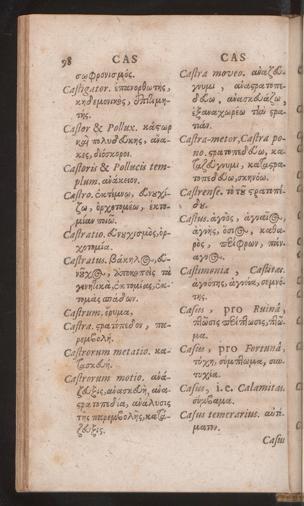 98 CAS
σωφρονισμός.
Castigator. ἐπανορθωτής,
κηδεμονικός, ἐπιτιμη-
τής.
Castor & Pollux. κάστωρ
καὶ πολυδεύκης, ἄνα-
κες, διόσκοροι.
Castoris & Pollucis tem-
plum. ἀνάκειον.
Castro. ἐκτέμνω, εὐνουχί-
ζω, ὀρχοτομέω, ἐκτο-
μίαν ποιῶ.
Castratio. εὐνουχισμὸς, ὀρ-
χοτομία.
Castratus. βάκηλος, εὐ-
νοῦχος, ἀποκοπεὶς τὰ
γεννητικὰ, ἐκτομίας, ἐκ-
τομὰς σπάδων.
Castrum. ἔρυμα.
Castra. στρατόπεδον, πα-
ρεμβολή.
Castrorum metatio. κα-
τασκευή.
Castrorum motio. ἀνά-
ζευξις, ἀνασκευὴ, ἀνα-
στρατοπεδία, ἀνάλυσις
τῆς παρεμβολῆς, κατά-
ζευξις.
CAS
Castra moveo. ἀναζεύ-
γνυμι, ἀναστρατοπε-
δεύω, ἀνασκευάζω,
ἐξαναχωρέω τῶν στρα-
τιῶν.
Castra-metor, Castra po-
no. στρατοπεδεύω, κα-
ταζεύγνυμι, καταστρα-
τοπεδεύω, σκηνόω.
Castrense. τὸ τοῦ στρατοπέ-
δου.
Castus. ἁγνὸς, ἁγναῖος,
ἁγνὴς, ὅσιος, καθα-
ρὸς,
Castimonia, Castitas.
ἁγνότης, ἁγνεία, σεμνό-
της.
Casus, pro Ruinâ,
πτῶσις
μα.
Casus, pro Fortunâ,
τύχη, σύμπτωμα, συν-
τυχία.
Casus, i.e. Calamitas.
σύμβαμα.
Casus temerarius. αὐτό-
ματον.
Casus